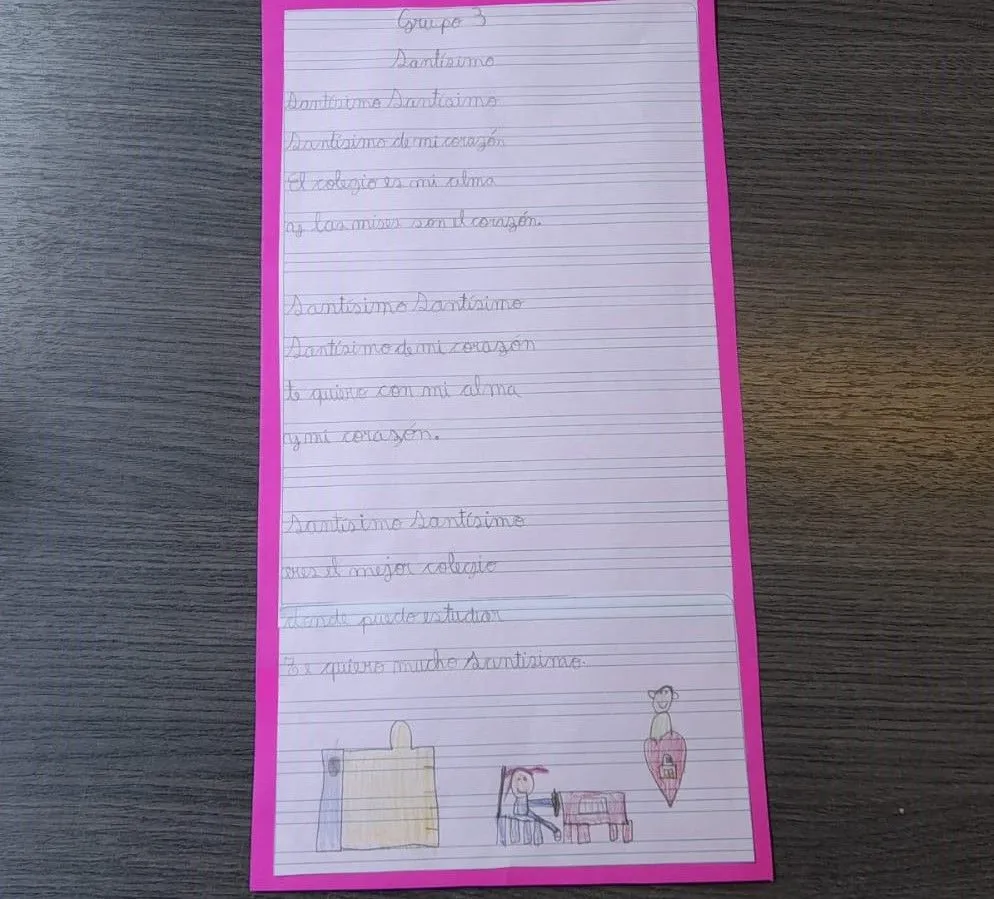 Grupo 3
Santísimo
Santísimo Santísimo
Santísimo de mi corazón
El colegio es mi alma
y las mises son el corazón.
Santísimo Santísimo
Santísimo de mi corazón
te quiero con mi alma
y mi corazón.
Santísimo Santísimo
eres el mejor colegio
donde puedo estudiar
Te quiero mucho Santísimo.